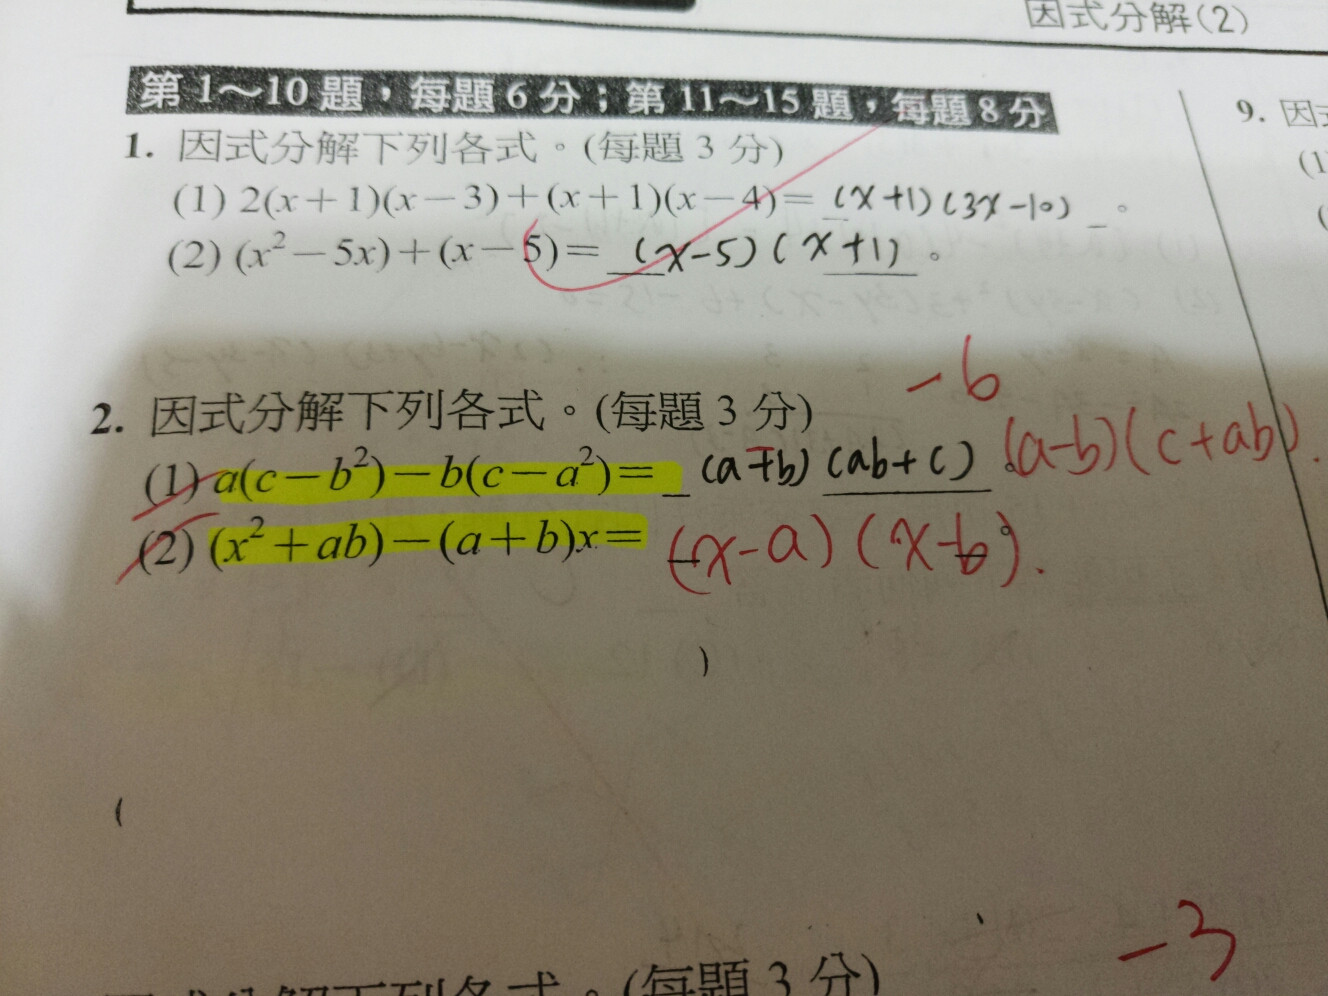 因式分解(2)
第1～10題，每題6分；第11～15題，每題8分
1. 因式分解下列各式。(每題3分)
(1) 2(x+1)(x-3)+(x+1)(x-4)= (x+1)(3x-10) 。
(2) (x²-5x)+(x-5)= (x-5)(x+1) 。
9. 因
(1
(
-6
2. 因式分解下列各式。(每題3分)
(1) a(c-b²)-b(c-a²)= (a-b)(ab+c) 。(a-b)(c+ab).
(2) (x²+ab)-(a+b)x= (x-a)(x-b). 。
)
(
-3
因式分解下列各式。(每題3分)